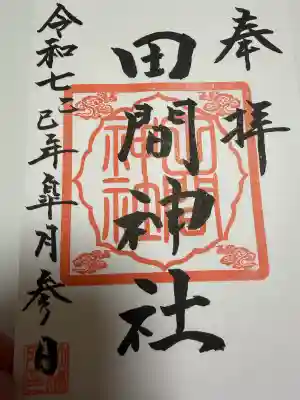 奉拝
田間神社
令和七乙巳年皐月参日
田間神社